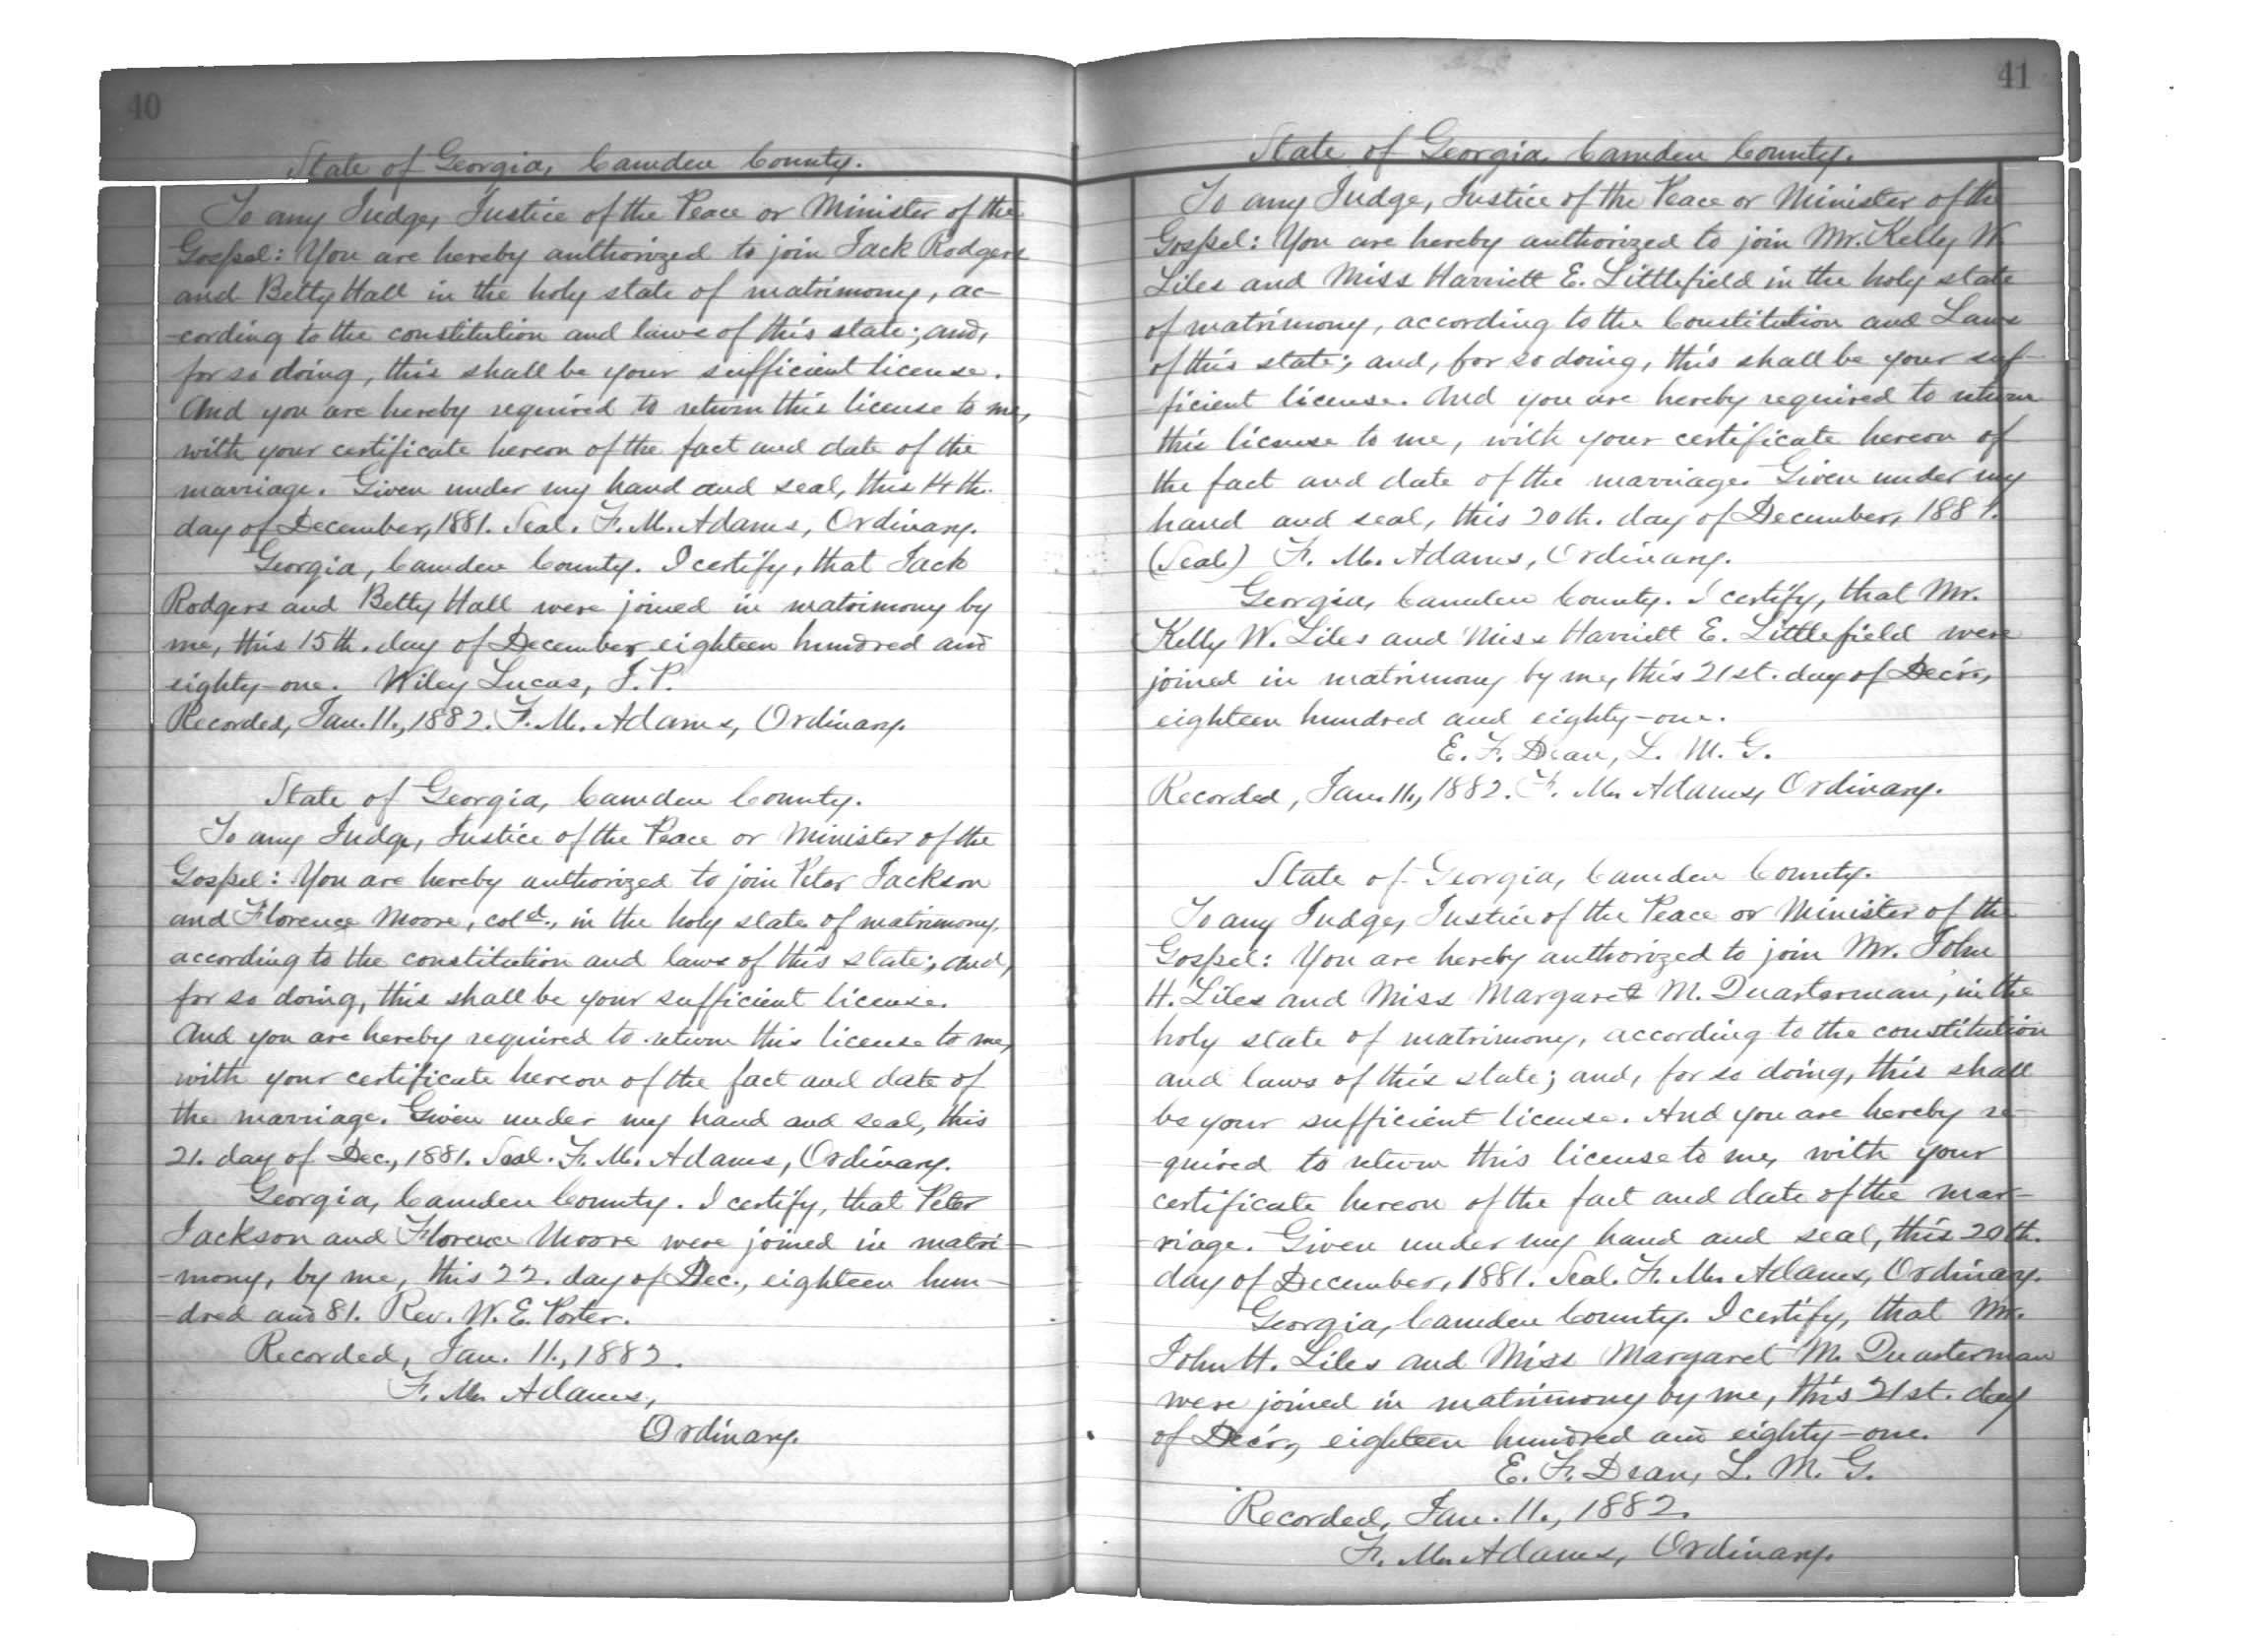 40
State of Georgia, Camden County.
To any Judge, Justice of the Peace or Minister of the
Gospel: You are hereby authorized to join Jack Rodgers
and Betty Hall in the holy state of matrimony, ac-
-cording to the constitution and laws of this state; and,
for so doing, this shall be your sufficient license.
And you are hereby required to return this license to me,
with your certificate hereon of the fact and date of the
marriage. Given under my hand and seal, this 14th.
day of December, 1881. Seal. F. M. Adams, Ordinary.
Georgia, Camden County. I certify, that Jack
Rodgers and Betty Hall were joined in matrimony by
me, this 15th. day of December eighteen hundred and
eighty-one. Wiley Lucas, J. P.
Recorded, Jan. 11., 1882. F. M. Adams, Ordinary.
State of Georgia, Camden County.
To any Judge, Justice of the Peace or Minister of the
Gospel: You are hereby authorized to join Peter Jackson
and Florence Moore, cold., in the holy state of matrimony,
according to the constitution and laws of this state; and,
for so doing, this shall be your sufficient license.
And you are hereby required to return this license to me,
with your certificate hereon of the fact and date of
the marriage. Given under my hand and seal, this
21. day of Dec., 1881. Seal. F. M. Adams, Ordinary.
Georgia, Camden County. I certify, that Peter
Jackson and Florence Moore were joined in matri-
-mony, by me, this 22. day of Dec., eighteen hun-
-dred and 81. Rev. W. E. Porter.
Recorded, Jan. 11., 1882.
F. M. Adams,
Ordinary.
41
State of Georgia, Camden County.
To any Judge, Justice of the Peace or Minister of the
Gospel: You are hereby authorized to join Mr. Kelly W.
Liles and Miss Harriett E. Littlefield in the holy state
of matrimony, according to the Constitution and Laws
of this state; and, for so doing, this shall be your suf-
-ficient license. And you are hereby required to return
this license to me, with your certificate hereon of
the fact and date of the marriage. Given under my
hand and seal, this 20th. day of December, 1881.
(Seal) F. M. Adams, Ordinary.
Georgia, Camden County. I certify, that Mr.
Kelly W. Liles and Miss Harriett E. Littlefield were
joined in matrimony by me, this 21st. day of Dec'r.,
eighteen hundred and eighty-one.
E. F. Dean, L. M. G.
Recorded, Jan. 11., 1882. F. M. Adams, Ordinary.
State of Georgia, Camden County.
To any Judge, Justice of the Peace or Minister of the
Gospel: You are hereby authorized to join Mr. John
H. Liles and Miss Margaret M. Quarterman, in the
holy state of matrimony, according to the constitution
and laws of this state; and, for so doing, this shall
be your sufficient license. And you are hereby re-
-quired to return this license to me, with your
certificate hereon of the fact and date of the mar-
-riage. Given under my hand and seal, this 20th.
day of December, 1881. Seal. F. M. Adams, Ordinary.
Georgia, Camden County. I certify, that Mr.
John H. Liles and Miss Margaret M. Quarterman
were joined in matrimony by me, this 21st. day
of Dec'r., eighteen hundred and eighty-one.
E. F. Dean, L. M. G.
Recorded, Jan. 11., 1882.
F. M. Adams, Ordinary.